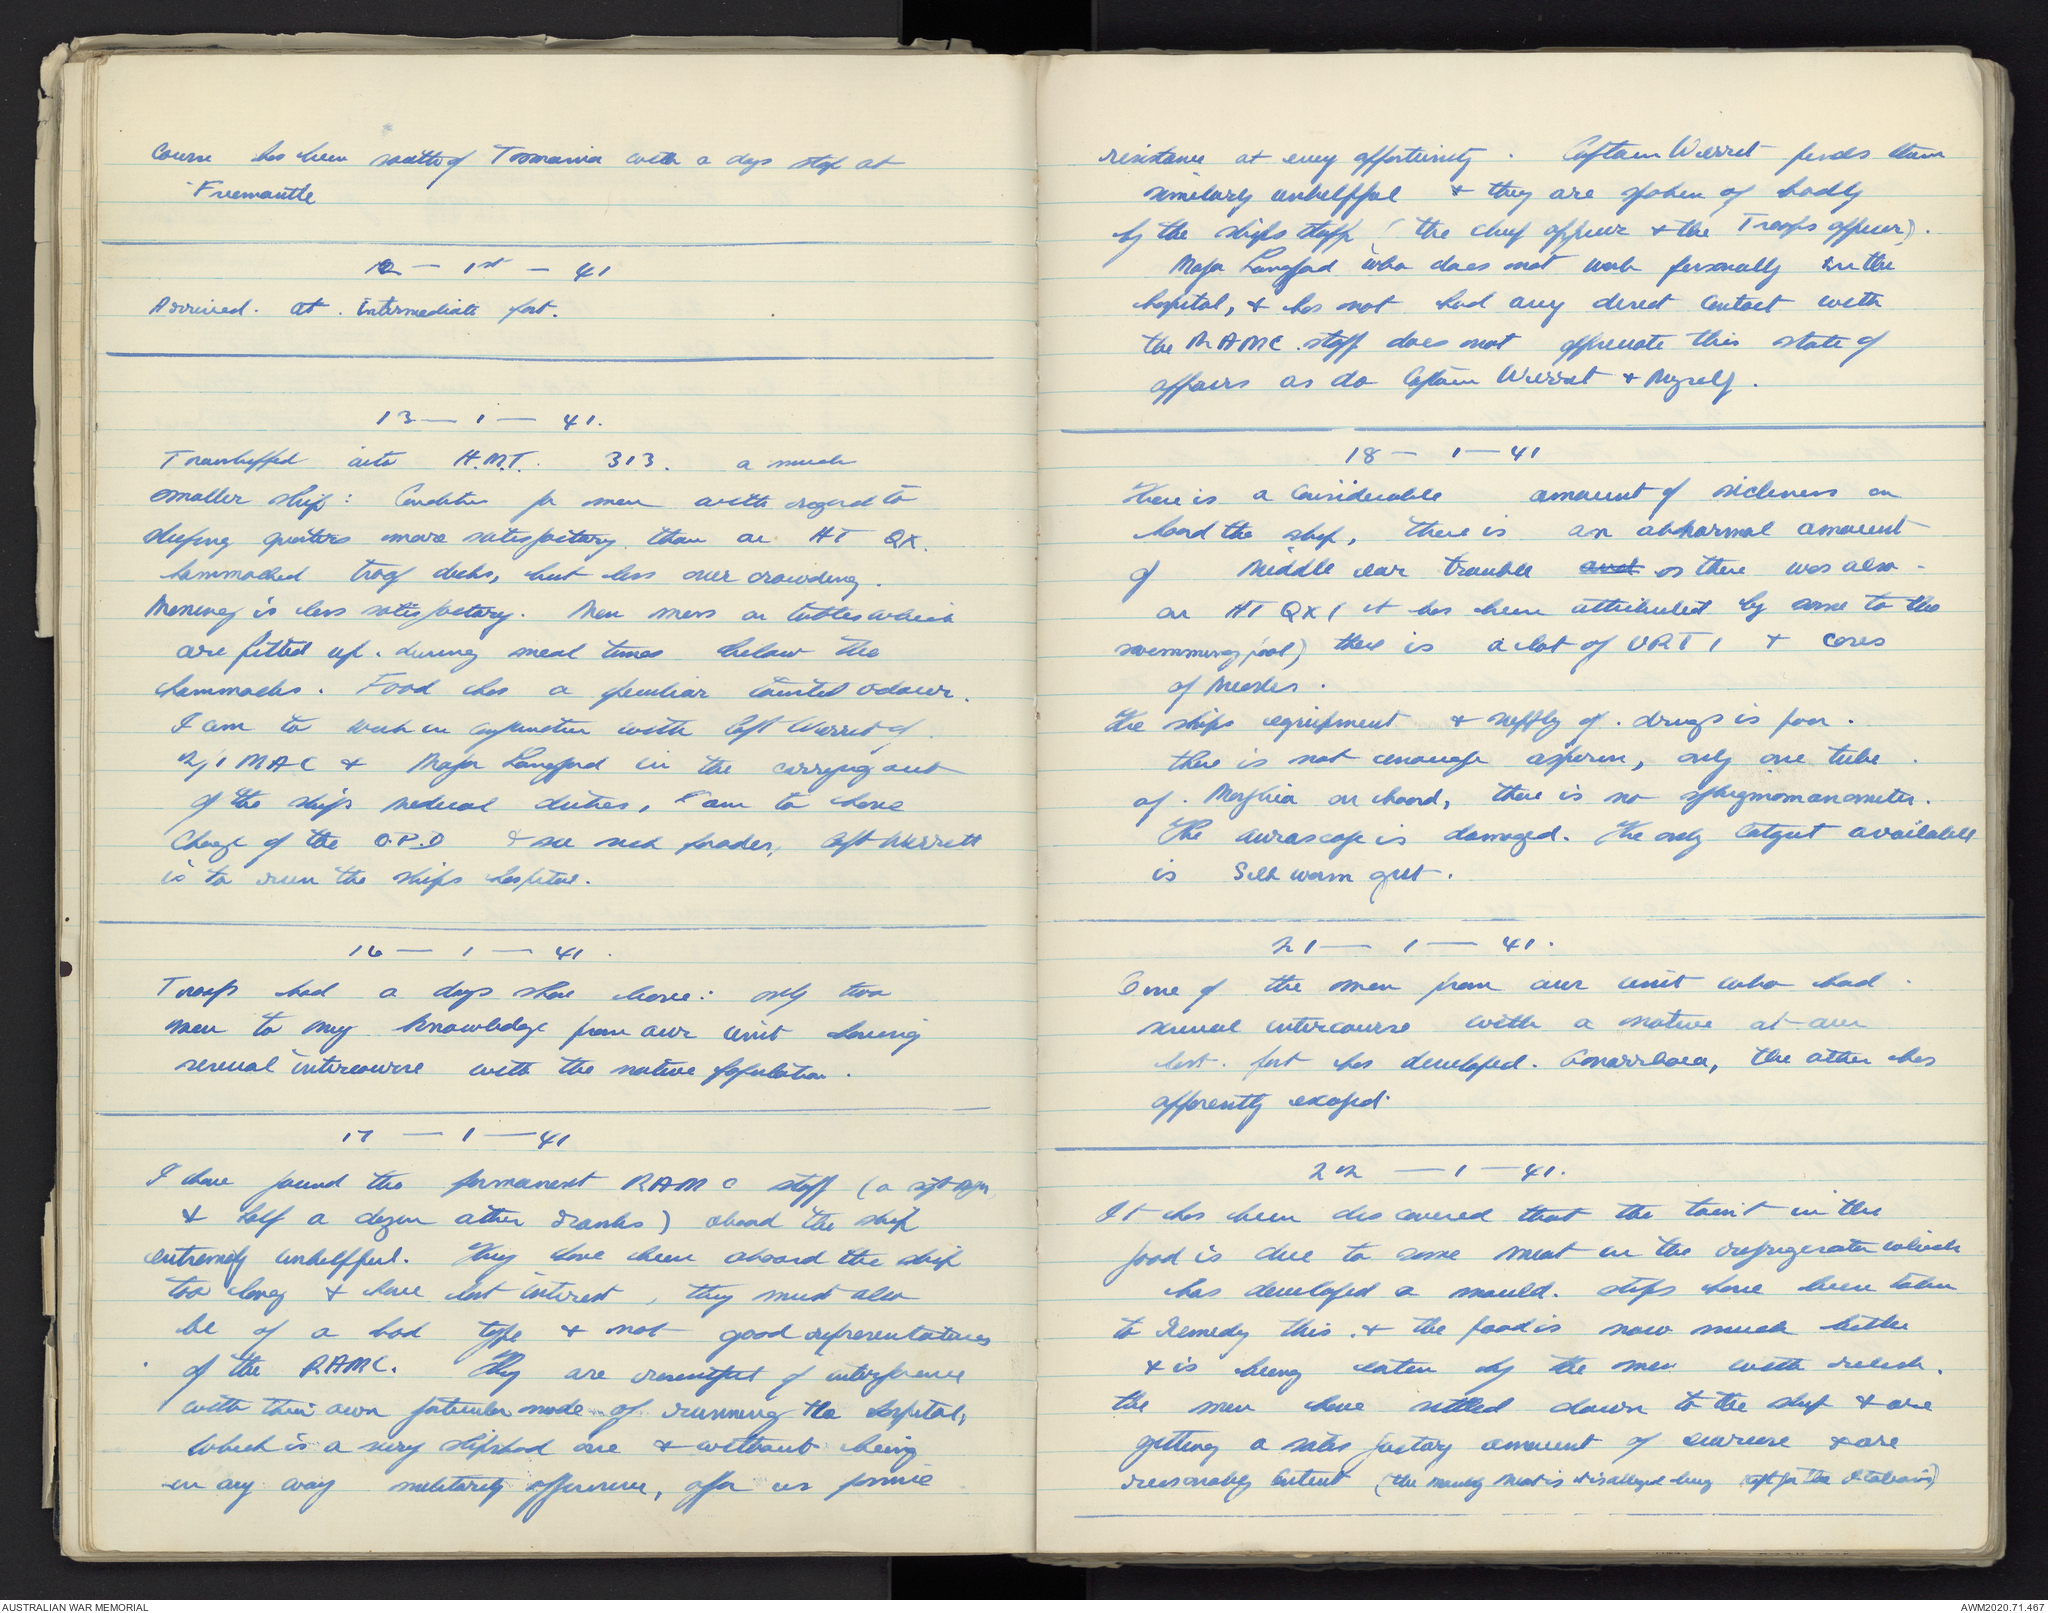 Course has been south of Tasmania with a days stop at
Fremantle
12 – 1st – 41
Arrived at intermediate port.
13 – 1 – 41.
Transhipped into H.M.T. 313. a much
smaller ship: Condition for men with regard to
sleeping quarters more satisfactory than on HT QX.
hammocked troop decks, but less over crowding.
Messing is less satisfactory. Men mess on tables which
are fitted up during meal times below the
hammocks. Food has a peculiar tainted odour.
I am to work in conjunction with Capt Werrett of
2/1 MAC & Major Langford in the carrying out
of the ships medical duties, I am to have
Charge of the O.P.D & see sick parades, Capt Werrett
is to run the ships hospital.
16 – 1 – 41.
Troops had a days shore leave: only two
men to my knowledge from our unit having
sexual intercourse with the native population.
17 – 1 – 41
I have found the permanent RAMC staff (a sgt Major
& half a dozen other ranks) aboard the ship
extremely unhelpful. They have been aboard the ship
too long & have lost interest, they must also
be of a bad type & not good representatives
of the RAMC. They are resentful of interference
with their own particular mode of running the hospital,
which is a very slipshod one & without being
in any way militarily offensive, offer us passive
resistance at every opportunity. Captain Werrett finds them
similarly unhelpful & they are spoken of badly
by the ships staff (the chief officer & the Troops officer).
Major Langford who does not work personally in the
hospital, & has not had any direct contact with
the RAMC staff does not appreciate this state of
affairs as do Captain Werrett & Myself.
18 – 1 – 41
There is a considerable amount of sickness on
board the ship, there is an abnormal amount
of Middle ear trouble and as there was also
on HT QX (it has been attributed by some to the
swimming pool) there is a lot of URTI & cases
of Measles.
The ships equipment & supply of drugs is poor.
there is not enough asperin, only one tube
of Morphia on board, there is no sphygmomanometer.
The auroscope is damaged. The only catgut available
is Silk worm gut.
21 – 1 – 41.
One of the men from our unit who had
sexual intercourse with a native at our
last port has developed Gonorrhoea, the other has
apparently escaped.
22 – 1 – 41.
It has been discovered that the taint in the
food is due to some meat in the refrigerator which
has developed a mould. Steps have been taken
to remedy this & the food is now much better
& is being eaten by the men with relish.
The men have settled down to the ship & are
getting a satisfactory amount of exercise & are
reasonably content (the mouldy meat is it is alleged being kept for the Italians)
AUSTRALIAN WAR MEMORIAL
AWM2020.71.467